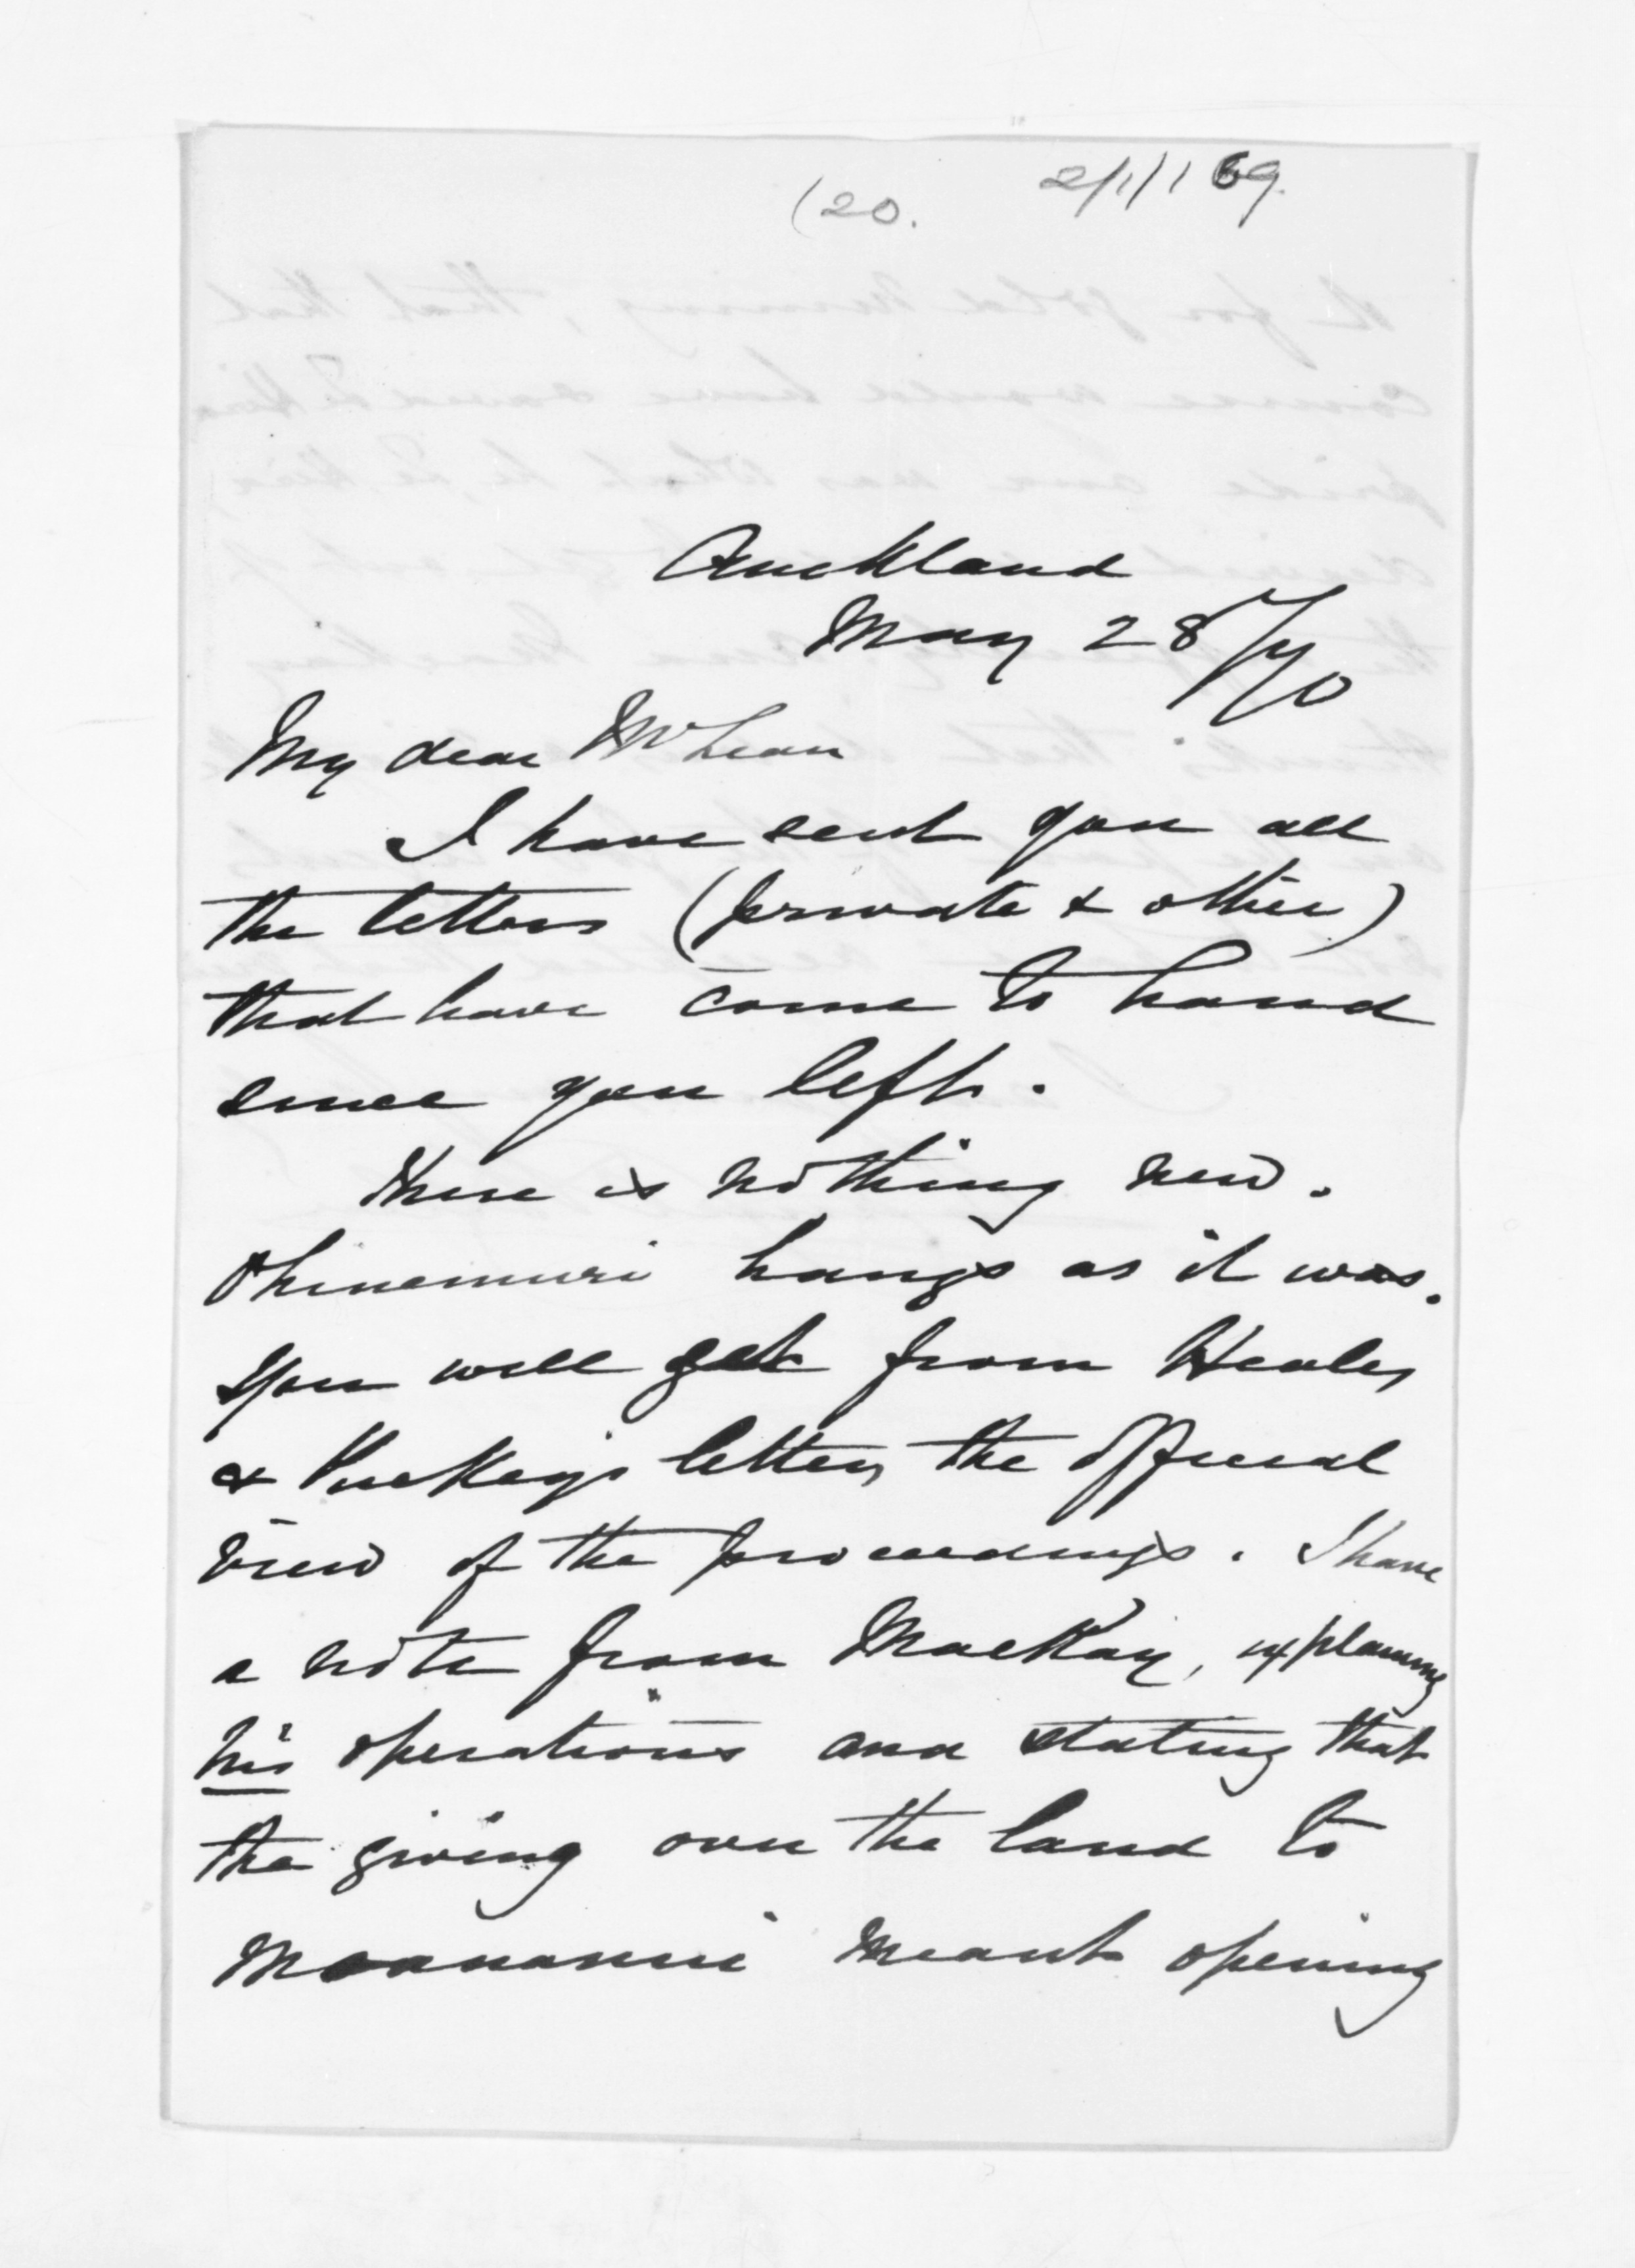 (20. 2/1/169.
Auckland
May 28/70
My dear McLean
I have sent you all
the letters (private & other)
that have come to hand
since you left.
There is nothing new.
Ohinemuri hangs as it was.
You will get from Heales
& Puckey's letters the official
view of the proceedings. I have
a note from MacKay, explaining
his operations and stating that
the giving over the land to
Moananui meant opening